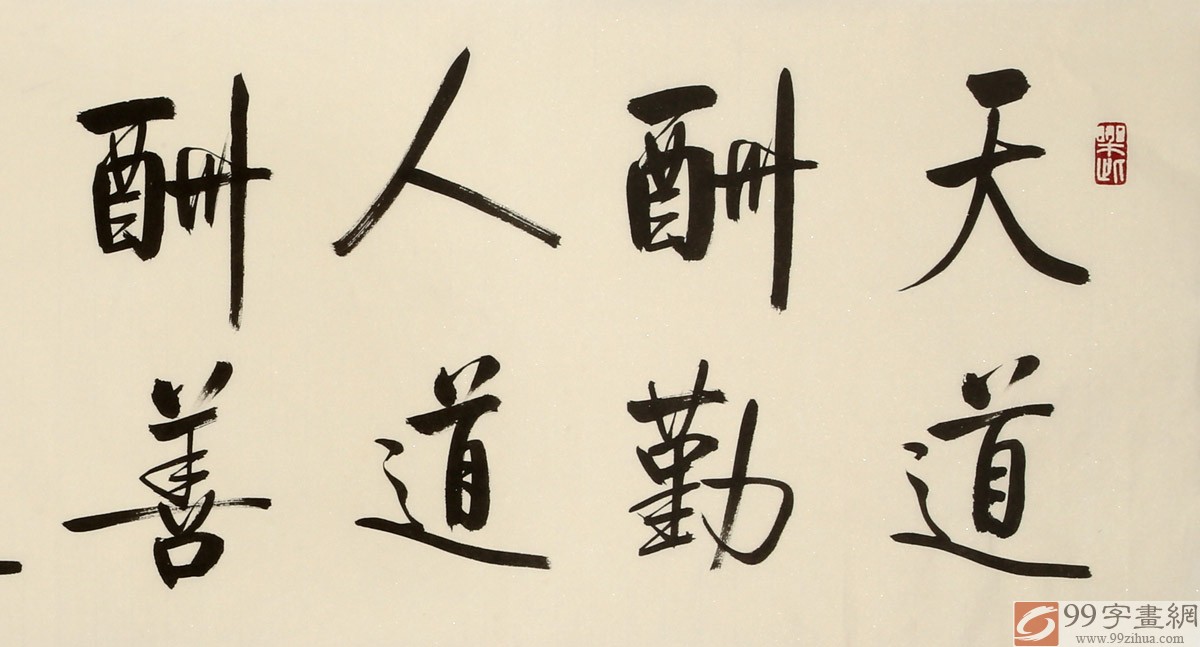 天道
酬勤
人道
酬善
99字畫網
www.99zihua.com